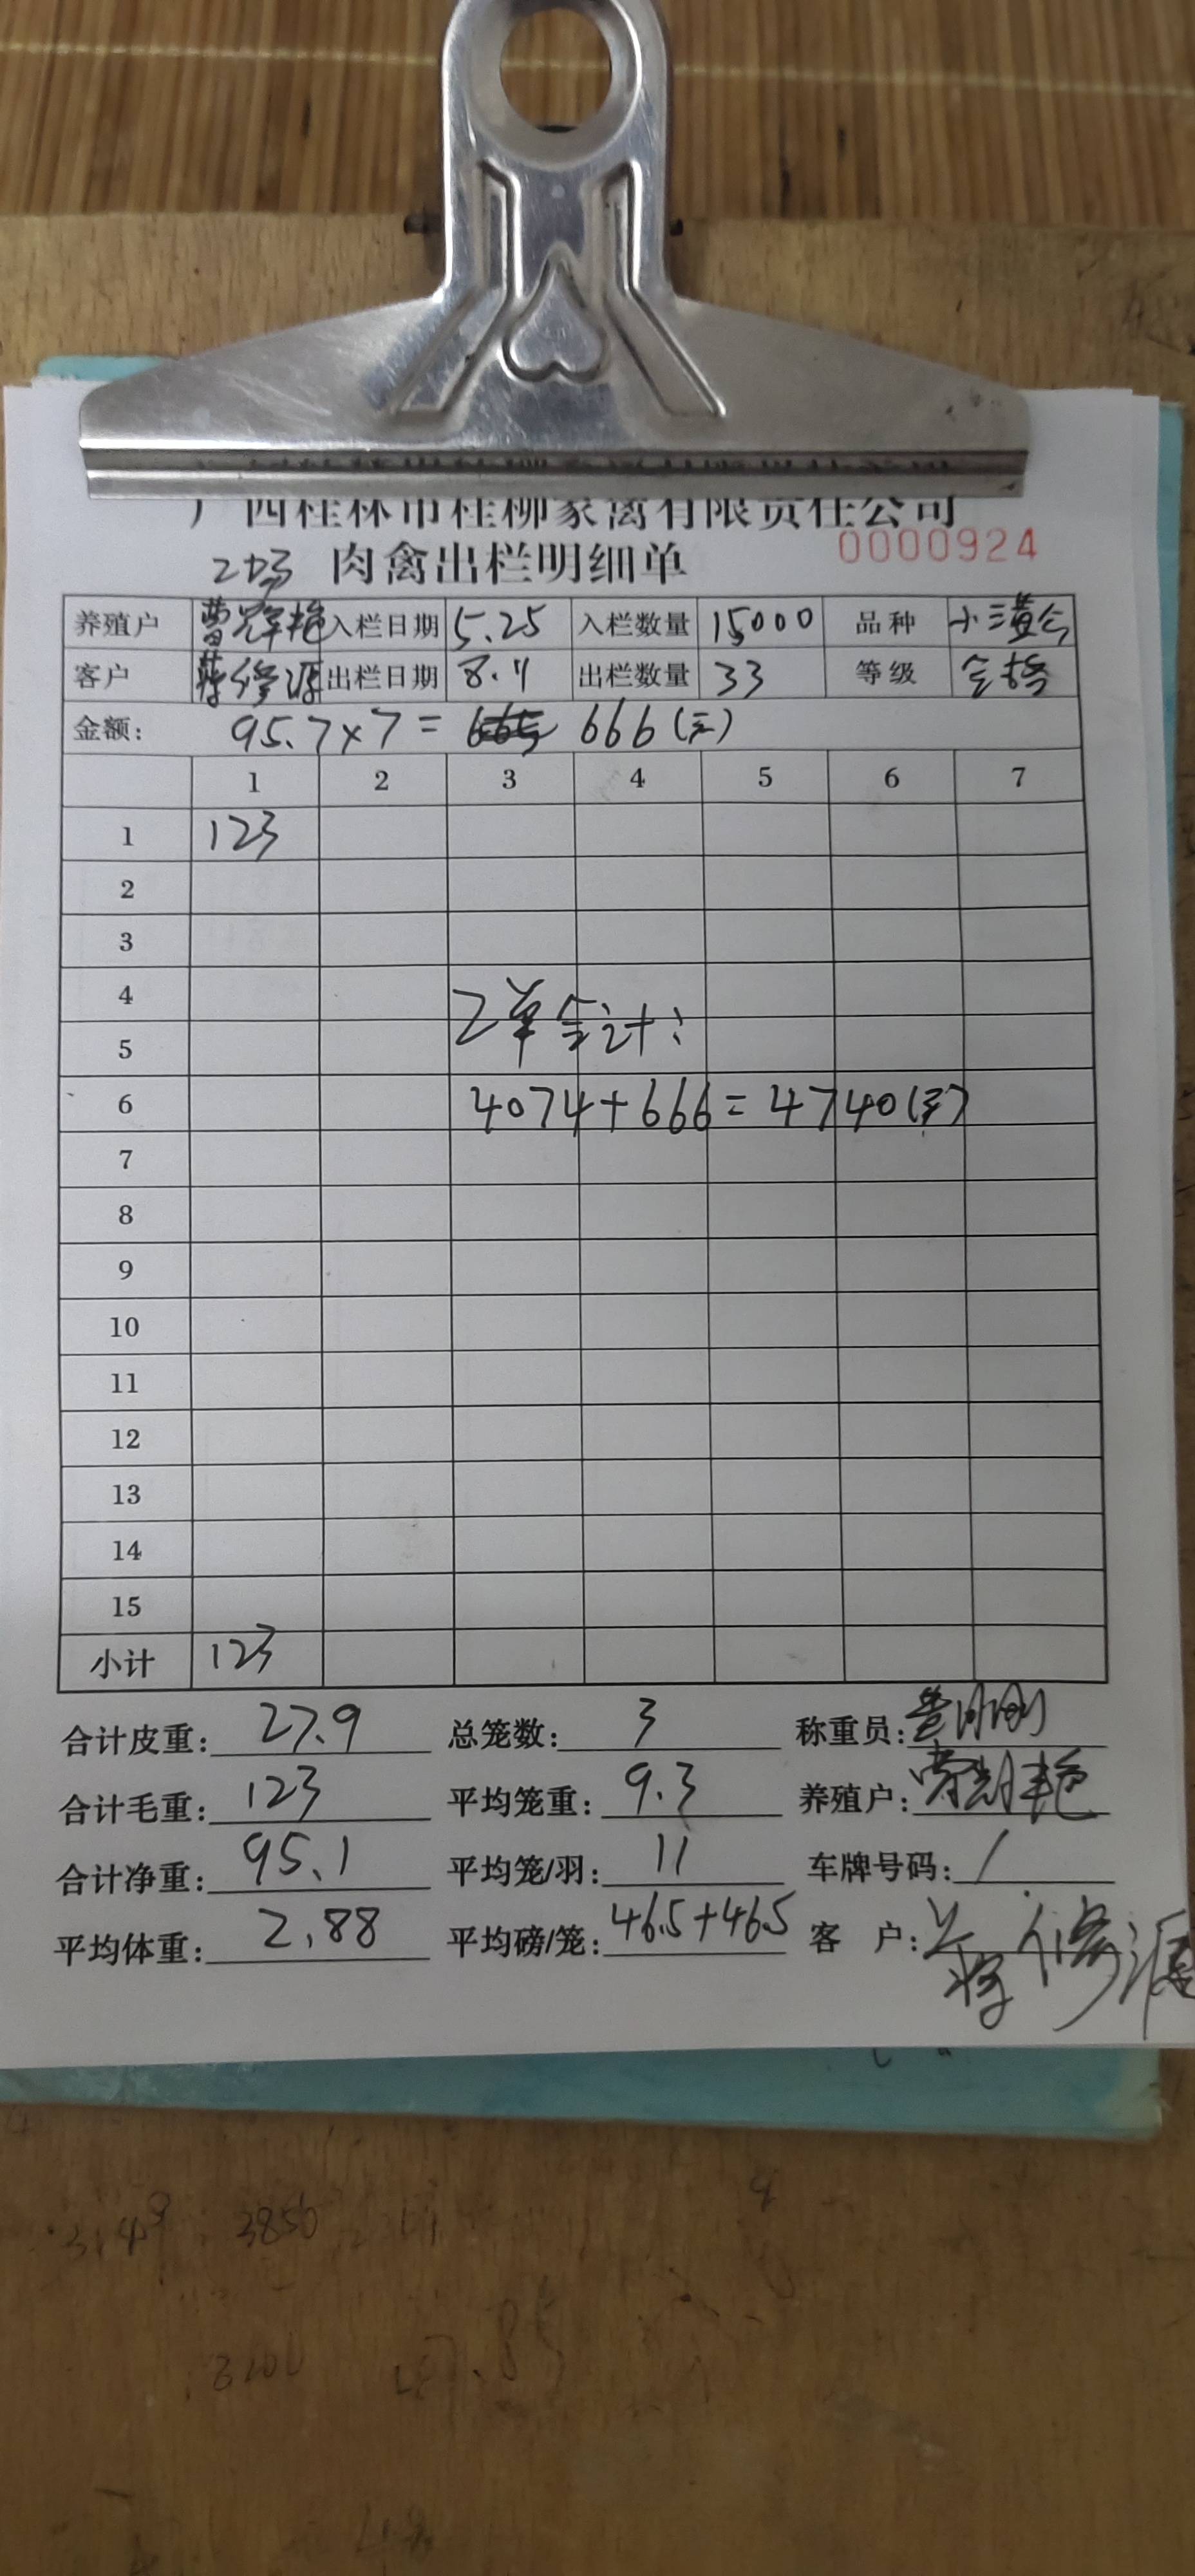 广西桂林市桂柳家禽有限责任公司
2场 肉禽出栏明细单 0000924
养殖户 入栏日期 5.25 入栏数量 15000 品种
客户 蒋修源 出栏日期 8.11 出栏数量 33 等级 合格
金额: 95.7×7= 666(元)
1 2 3 4 5 6 7
1 123
2
3
4
5
2单合计:
6 4074+666=4740(元)
7
8
9
10
11
12
13
14
15
小计 123
合计皮重: 27.9 总笼数: 3 称重员:
合计毛重: 123 平均笼重: 9.3 养殖户:
合计净重: 95.1 平均笼/羽: 11 车牌号码: /
平均体重: 2.88 平均磅/笼: 46.5+46.5 客 户: 蒋修源
3850